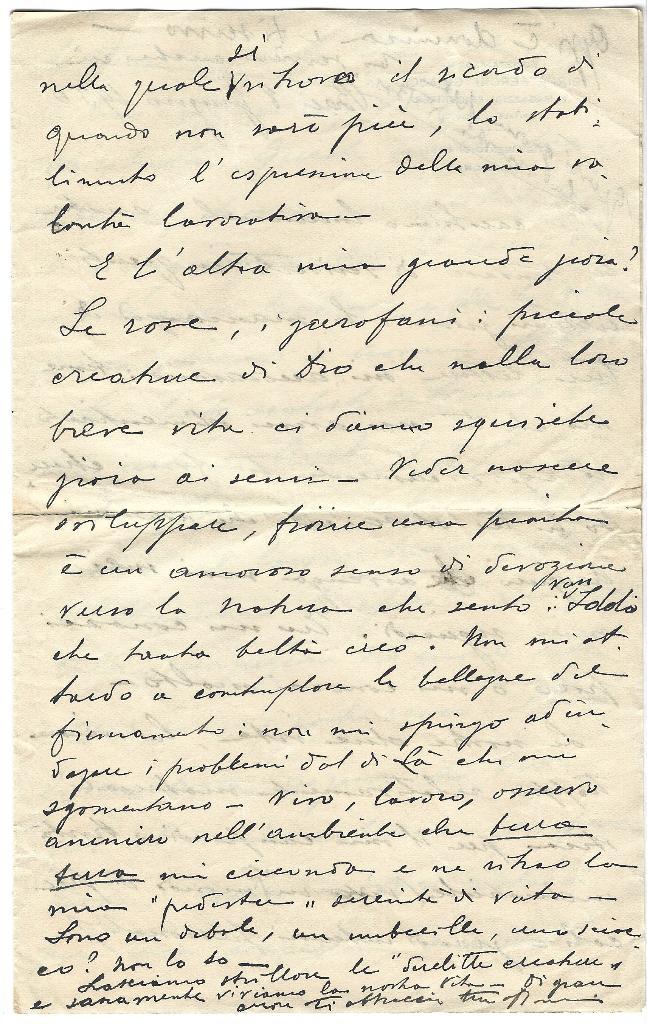 nella quale si ritrova il ricordo di
quando non sarò più, lo stabi-
limento l'espressione della mia vo-
lontà lavorativa -
E l'altra mia grande gioia?
Le rose, i garofani: piccole
creature di Dio che nella loro
breve vita ci danno squisite
gioie ai sensi - Veder nascere
sviluppare, fiorire una pianta
è un amoroso senso di devozione
verso la natura che sento: verso Iddio
che tanta beltà creò. Non mi at-
tardo a contemplare le bellezze del
firmamento: non mi spingo ad in-
dagare i problemi dal di là che mi
sgomentano - Vivo, lavoro, osservo
ammiro nell'ambiente che terra
terra mi circonda e ne ritraggo la
mia "pedestre" serenità di vita -
Sono un debole, un imbecille, uno scioc-
co? Non lo so -
Lasciamo strillare le "derelitte creature"
e sanamente viviamo la nostra vita - Di gran
cuore ti abbraccia